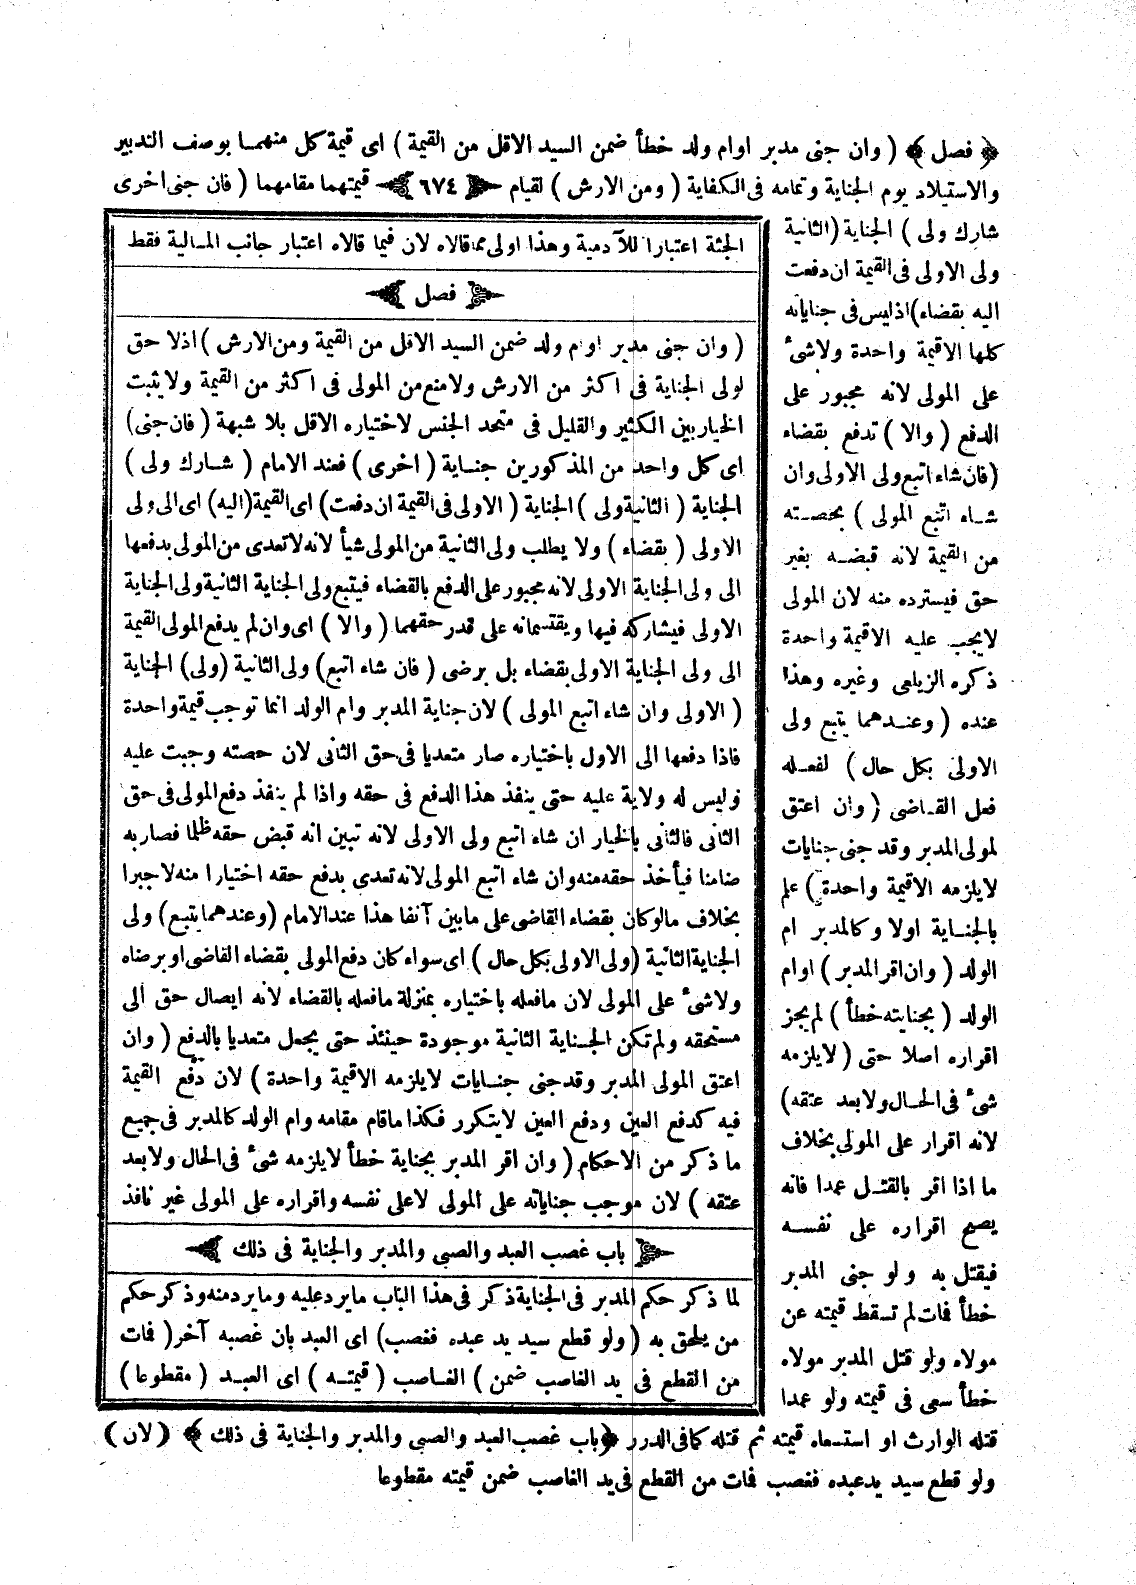 ﴿ فصل ﴾ ( وان جنى مدبر اوام ولد خطأ ضمن السيد الاقل من القيمة ) اى قيمة كل منهما بوصف التدبير
والاستيلاد يوم الجناية وتمامه فى الكفاية ( ومن الارش ) لقيام ﴿ ٦٧٤ ﴾ قيمتهما مقامهما ( فان جنى اخرى
شارك ولى ) الجناية (الثانية
ولى الاولى فى القيمة ان دفعت
اليه بقضاء) اذليس فى جناياته
كلها الاقيمة واحدة ولاشئ
على المولى لانه مجبور على
الدفع ( والا ) تدفع بقضاء
(فان شاء اتبع ولى الاولى وان
شـاء اتبع المولى ) بحصـته
من القيمة لانه قبضـه بغير
حق فيسترده منه لان المولى
لايجب عليه الاقيمة واحدة
ذكره الزيلعى وغيره وهذا
عنده ( وعنـدهما يتبع ولى
الاولى بكل حال ) لفعـله
فعل القـاضى ( وان اعتق
لمولى المدبر وقد جنى جنايات
لايلزمه الاقيمة واحدة ) علم
بالجنـاية اولا وكالمدبر ام
الولد ( وان اقر المدبر ) اوام
الولد ( بجنايته خطأ ) لم يجز
اقراره اصلا حتى ( لايلزمه
شئ فى الحـال ولابعد عتقه)
لانه اقرار على المولى بخلاف
ما اذا اقر بالقتـل عمدا فانه
يصح اقراره على نفسـه
فيقتل به ولو جنى المدبر
خطأ فمات لم تسقط قيمته عن
مولاه ولو قتل المدبر مولاه
خطأ سعى فى قيمته ولو عمدا
قتله الوارث او استـعاه قيمته ثم قتله كمافى الدرر ﴿ باب غصب العبد والصبى والمدبر والجناية فى ذلك ﴾ ( لان )
ولو قطع سيد يدعبده فغصب فمات من القطع فى يد الغاصب ضمن قيمته مقطوعا
الجثة اعتبارا للآدمية وهذا اولى مماقالاه لان فيما قالاه اعتبار جانب المـالية فقط
﴿ فصل ﴾
( وان جنى مدبر اوام ولد ضمن السيد الاقل من القيمة ومن الارش ) اذلا حق
لولى الجناية فى اكثر من الارش ولامنع من المولى فى اكثر من القيمة ولايثبت
الخيار بين الكثير والقليل فى متحد الجنس لاختياره الاقل بلا شبهة ( فان جنى)
اى كل واحد من المذكورين جنـاية ( اخرى ) فعند الامام ( شـارك ولى )
الجناية ( الثانية ولى ) الجناية ( الاولى فى القيمة ان دفعت) اى القيمة (اليه) اى الى ولى
الاولى ( بقضاء ) ولا يطلب ولى الثانية من المولى شيأ لانه لاتعدى من المولى بدفعها
الى ولى الجناية الاولى لانه مجبور على الدفع بالقضاء فيتبع ولى الجناية الثانية ولى الجناية
الاولى فيشاركه فيها ويقتسمانه على قدر حقهما ( والا ) اى وان لم يدفع المولى القيمة
الى ولى الجناية الاولى بقضاء بل برضى ( فان شاء اتبع) ولى الثانية (ولى) الجناية
( الاولى وان شاء اتبع المولى ) لان جناية المدبر وام الولد انما توجب قيمة واحدة
فاذا دفعها الى الاول باختياره صار متعديا فى حق الثانى لان حصته وجبت عليه
وليس له ولاية عليه حتى ينفذ هذا الدفع فى حقه واذا لم ينفذ دفع المولى فى حق
الثانى فالثانى بالخيار ان شاء اتبع ولى الاولى لانه تبين انه قبض حقه ظلما فصار به
ضامنا فيأخذ حقه منه وان شاء اتبع المولى لانه تعدى بدفع حقه اختيارا منه لاجبرا
بخلاف مالوكان بقضاء القاضى على مابين آنفا هذا عند الامام ( وعندهما يتبع) ولى
الجناية الثانية ( ولى الاولى بكل حال ) اى سواء كان دفع المولى بقضاء القاضى او برضاه
ولاشئ على المولى لان مافعله باختياره بمنزلة مافعله بالقضاء لانه ايصال حق الى
مستحقه ولم تكن الجـناية الثانية موجودة حينئذ حتى يجعل متعديا بالدفع ( وان
اعتق المولى المدبر وقد جنى جنـايات لايلزمه الاقيمة واحدة ) لان دفع القيمة
فيه كدفع العين ودفع العين لايتكرر فكذا ماقام مقامه وام الولد كالمدبر فى جميع
ما ذكر من الاحكام ( وان اقر المدبر بجناية خطأ لايلزمه شئ فى الحال ولابعد
عتقه ) لان موجب جناياته على المولى لاعلى نفسه واقراره على المولى غير نافذ
﴿ باب غصب العبد والصبى والمدبر والجناية فى ذلك ﴾
لما ذكر حكم المدبر فى الجناية ذكر فى هذا الباب مايرد عليه ومايرد منه وذكر حكم
من يلحق به ( ولو قطع سيد يد عبده فغصب) اى العبد بان غصبه آخر ( فمات
من القطع فى يد الغاصب ضمن ) الغـاصب ( قيمتـه ) اى العبـد ( مقطوعا )